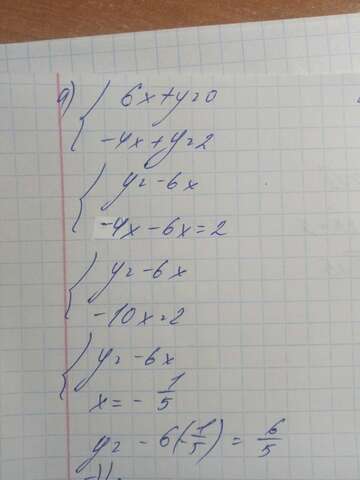 а) { 6x + y = 0
-4x + y = 2
{ y = -6x
-4x - 6x = 2
{ y = -6x
-10x = 2
{ y = -6x
x = - 1/5
y = - 6(-1/5) = 6/5